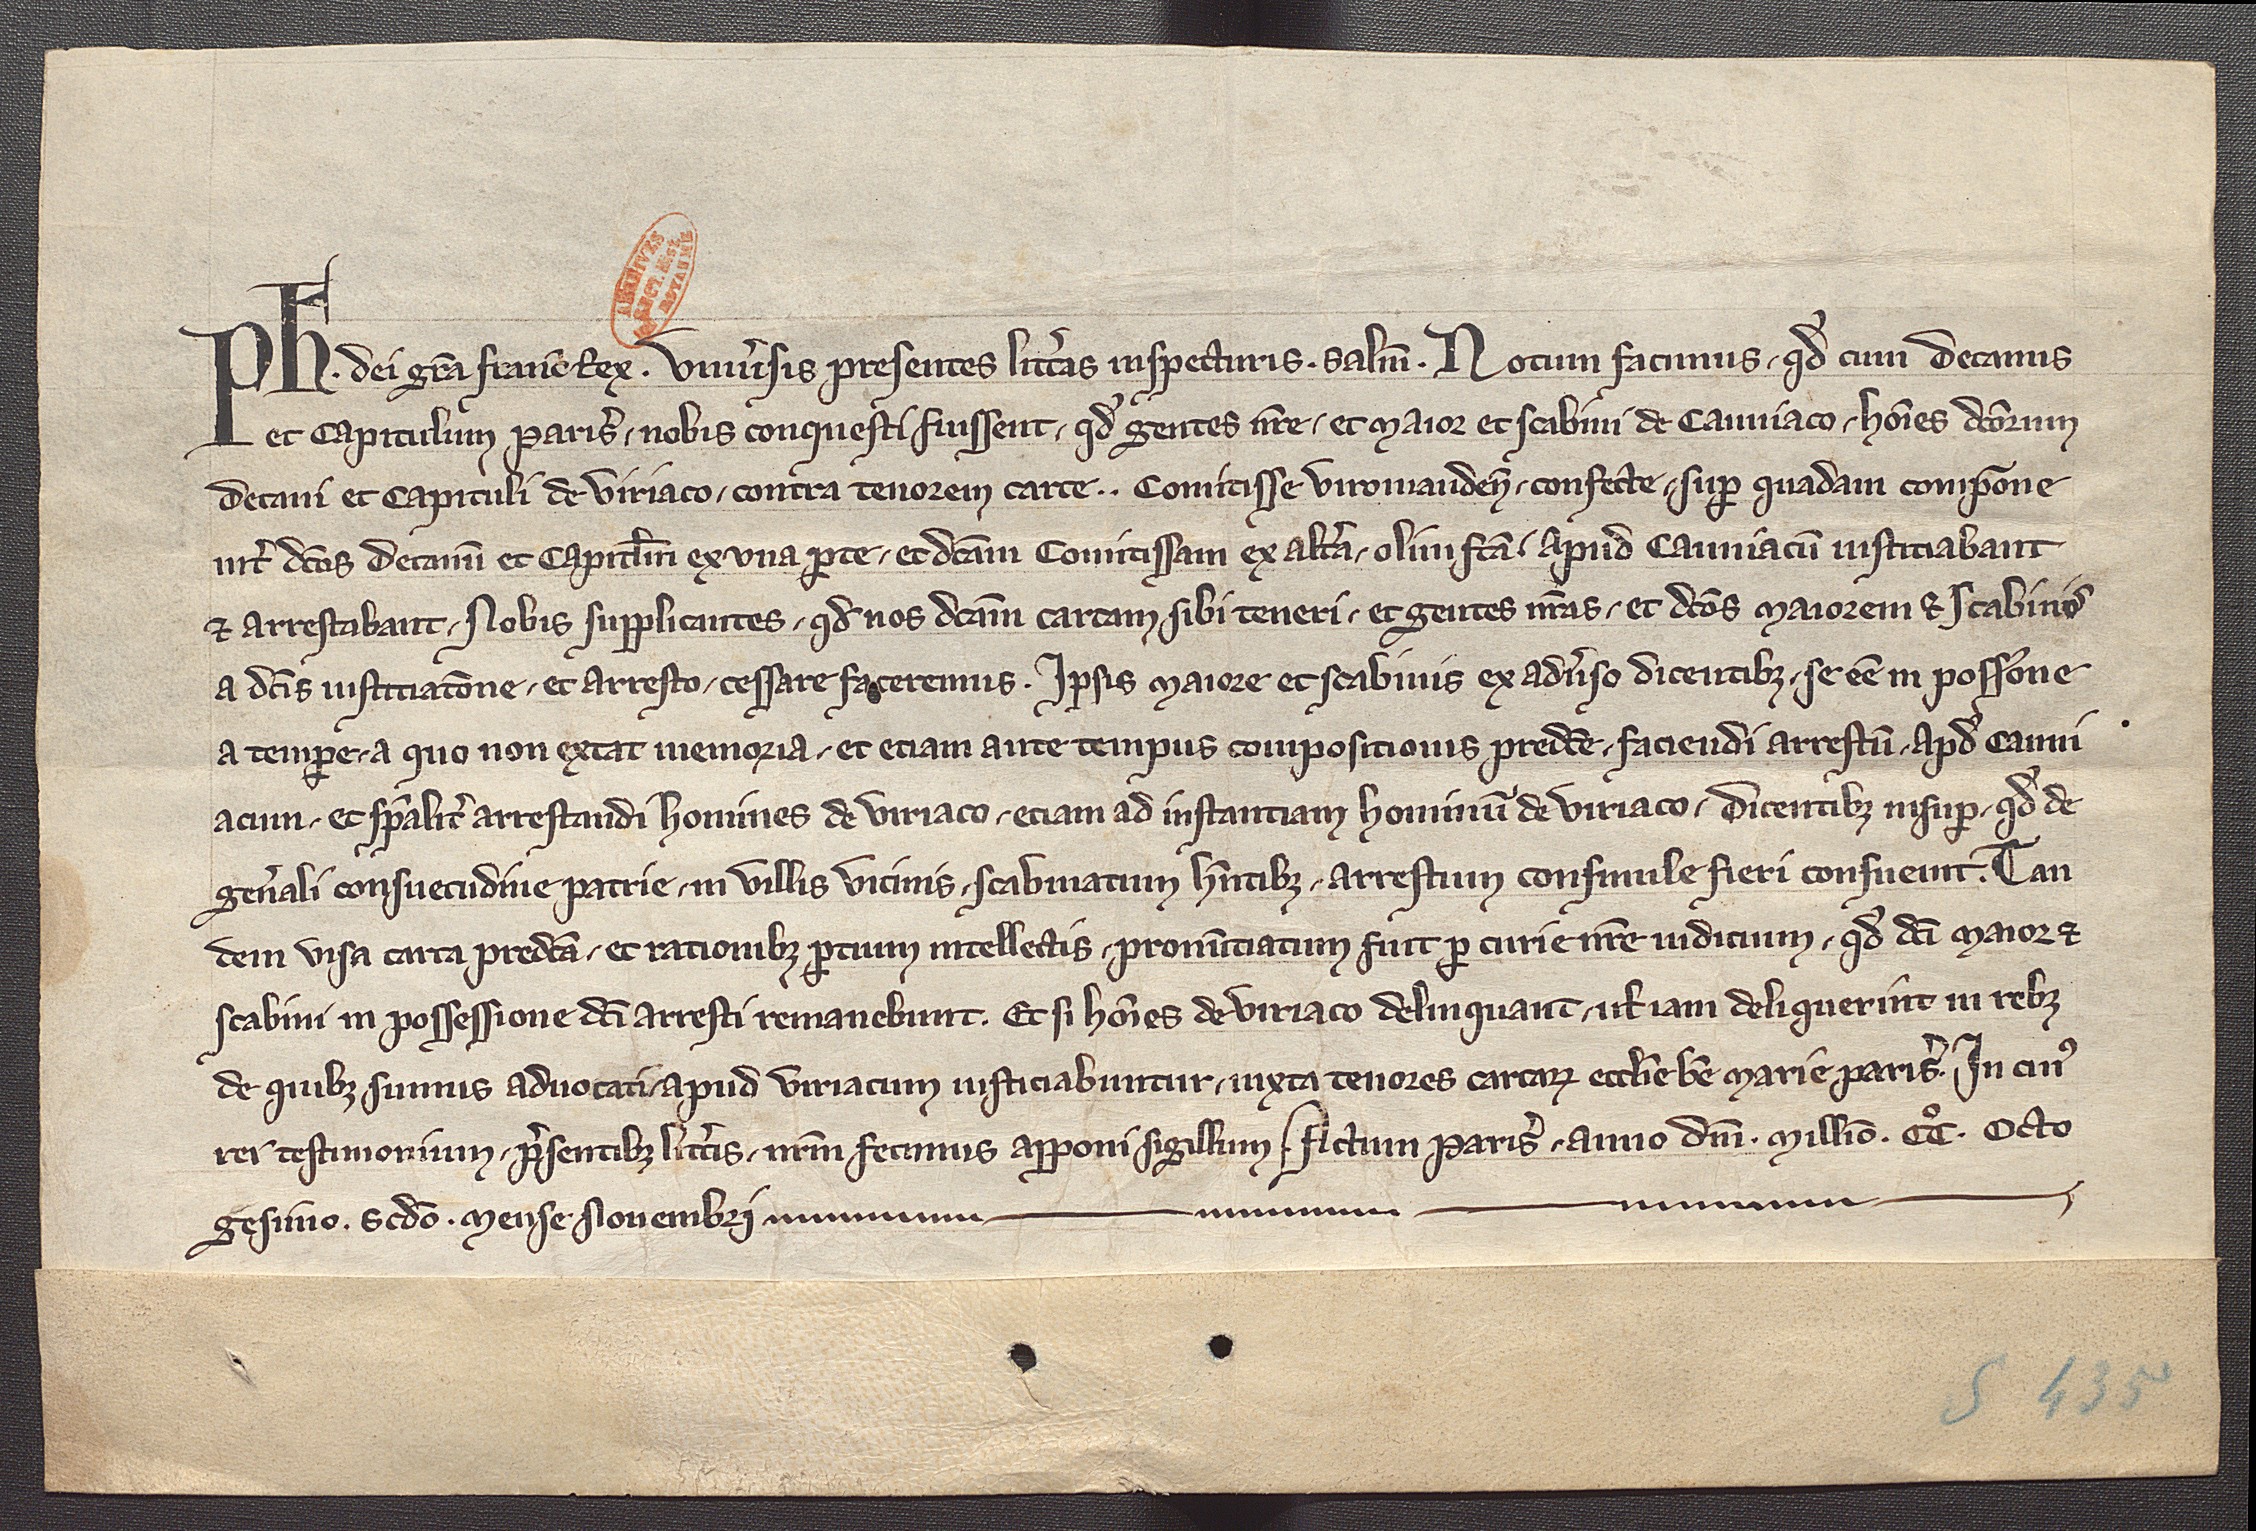 Ph. dei gr̄a franc̄ Rex. Vniu̾sis presentes litt̾as inspecturis. salm̄. Notum facimus, qd̾ cum Decanus
et Capitulum paris̾, nobis conquesti fuissent, qd̾ gentes nr̄e, et maior et scabini de Cauniaco, hoīes dc̄orum
Decani et Capituli de viriaco, contra tenorem carte .. Comitisse viromanden̄, confecte, sup̱ quadam comp̄one
int̾ dc̄os Decanū et Capitl̄m ex vna p̱te, et dc̄am Comitissam ex alt̾a, olim fc̄a, apud Cauniacū iustitiabant
⁊ arrestabant, Nobis supplicantes, qd̾ nos dc̄am cartam sibi teneri, et gentes nr̄as, et dc̄os maiorem ⁊ scabinos
a dc̄is iustitiatōne, et arresto, cessare faceremus. Ipsis maiore et scabinis ex adu̾so dicentibꝫ, se ēe in poss̄one
a temp̱e, a quo non extat memoria, et etiam ante tempus compositionis predc̄e, faciendi arrestū, apd̾ Cauni
acum, et sp̄alit̾ arrestandi homines de viriaco, etiam ad instantiam hominū de viriaco, Dicentibꝫ insup̱, qd̾ de
gen̾ali consuetudine patrie, in villis vicinis, scabinatum hn̄tibꝫ, arrestum consimile fieri consueuit. Tan
dem visa carta predc̄a, et rationibꝫ p̱tium intellectis, pronūtiatum fuit p̱ curie nr̄e iudicium, qd̾ dc̄i maior ⁊
scabini in possessione dc̄i arresti remanebunt. Et si hoīes de viriaco delinquant, ul̄ iam deliquerint in rebꝫ
de quibꝫ sumus aduocati, apud viriacum iusticiabuntur, iuxta tenores cartaꝝ eccl̄ie bē marie paris̾. In cuiꝰ
rei testimonium, p̄sentibꝫ litt̾is, nr̄m fecimus apponi sigillum. Actum Paris̾, anno dn̄i. Millīo. CC°. Octo
gesimo. scd̄o. Mense Nouembrj
ARCHIVES
SECT. HIST.
ROYAUME
S 435